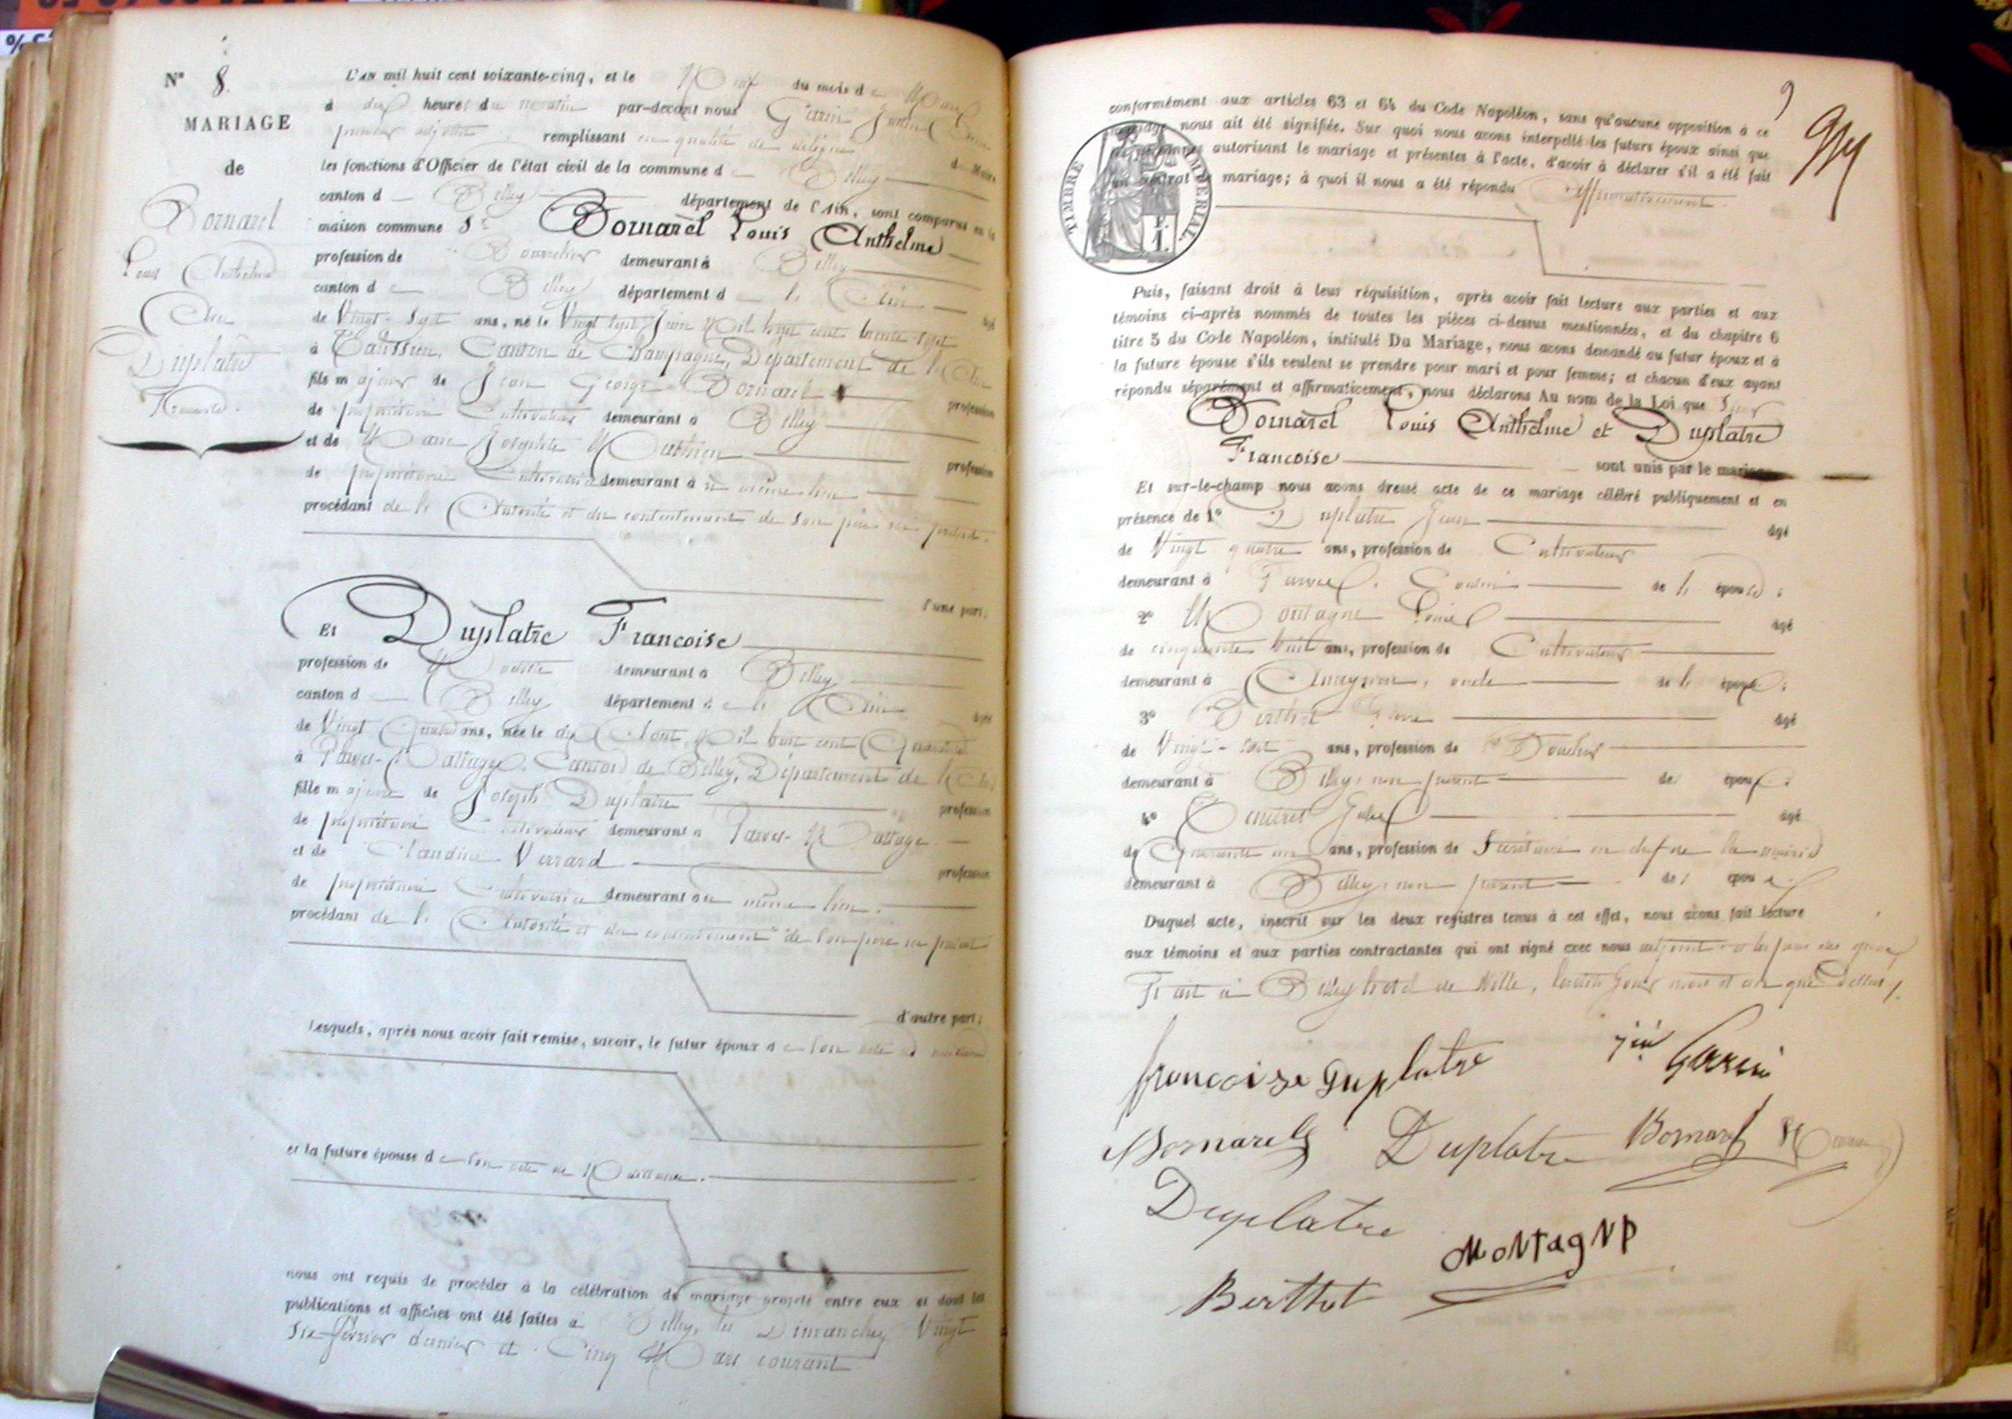 N° 8.
MARIAGE
de
Bornarel
Louis Anthelme
Duplatre
L'an mil huit cent soixante-cinq, et le Neuf du mois de Mars
à dix heures du matin par-devant nous Garin
premier adjoint remplissant en qualité de délégué
les fonctions d'Officier de l'état civil de la commune de Belley
canton de Belley département de l'Ain, sont comparus en la
maison commune Sr Bornarel Louis Anthelme
profession de demeurant à Belley
canton de Belley département de l'Ain âgé
de Vingt-Sept ans, né le Vingt sept Juin Mil huit cent trente sept
à Canton de Champagne, Département de l'Ain
fils majeur de Jean George Bornarel profession
de propriétaire Cultivateur demeurant à Belley
et de Marie Josephte profession
de propriétaire Cultivatrice demeurant au même lieu
procédant de l'Autorité et du consentement de son père ici présent.
l'une part;
Et Duplatre Francoise
profession de Modiste demeurant à Belley
canton de Belley département de l'Ain âgée
de Vingt Quatre ans, née le dix Août Mil huit cent Quarante
à Parves-Nattages, Canton de Belley, Département de l'Ain
fille majeure de Joseph Duplatre profession
de propriétaire Cultivateur demeurant à Parves-Nattages
et de Claudine Verrard profession
de propriétaire Cultivatrice demeurant au même lieu.
procédant de l'Autorité et du consentement de son père ici présent
d'autre part;
Lesquels, après nous avoir fait remise, savoir, le futur époux de son acte de naissance
et la future épouse de son acte de Naissance.
nous ont requis de procéder à la célébration du mariage projeté entre eux et dont les
publications et affiches ont été faites à Belley, les Dimanches Vingt
Six février dernier et Cinq Mars courant
9
conformément aux articles 63 et 64 du Code Napoléon, sans qu'aucune opposition à ce
mariage nous ait été signifiée. Sur quoi nous avons interpellé les futurs époux ainsi que
autorisant le mariage et présentes à l'acte, d'avoir à déclarer s'il a été fait
un contrat de mariage; à quoi il nous a été répondu affirmativement.
TIMBRE IMPERIAL
Puis, faisant droit à leur réquisition, après avoir fait lecture aux parties et aux
témoins ci-après nommés de toutes les pièces ci-dessus mentionnées, et du chapitre 6
titre 5 du Code Napoléon, intitulé Du Mariage, nous avons demandé au futur époux et à
la future épouse s'ils veulent se prendre pour mari et pour femme; et chacun d'eux ayant
répondu séparément et affirmativement, nous déclarons Au nom de la Loi que
Bornarel Louis Anthelme et Duplatre
Francoise sont unis par le mariage
Et sur-le-champ nous avons dressé acte de ce mariage célébré publiquement et en
présence de 1° Duplatre Jean âgé
de Vingt quatre ans, profession de Cultivateur
demeurant à Parves. Cousin de l' épouse;
2° Montagne Louis âgé
de cinquante huit ans, profession de Cultivateur
demeurant à oncle de l' époux;
3° Berthet âgé
de Vingt-sept ans, profession de
demeurant à Belley, non parent de époux.
4° âgé
de Quarante un ans, profession de Secrétaire en chef de la mairie
demeurant à Belley, non parent des époux.
Duquel acte, inscrit sur les deux registres tenus à cet effet, nous avons fait lecture
aux témoins et aux parties contractantes qui ont signé avec nous
Fait à Belley hotel de Ville, lesdits Jour mois et an que Dessus.
francoise Duplatre
Garin
Bornarel Duplatre Bornarel
Duplatre
MoNTagNe
Berthet